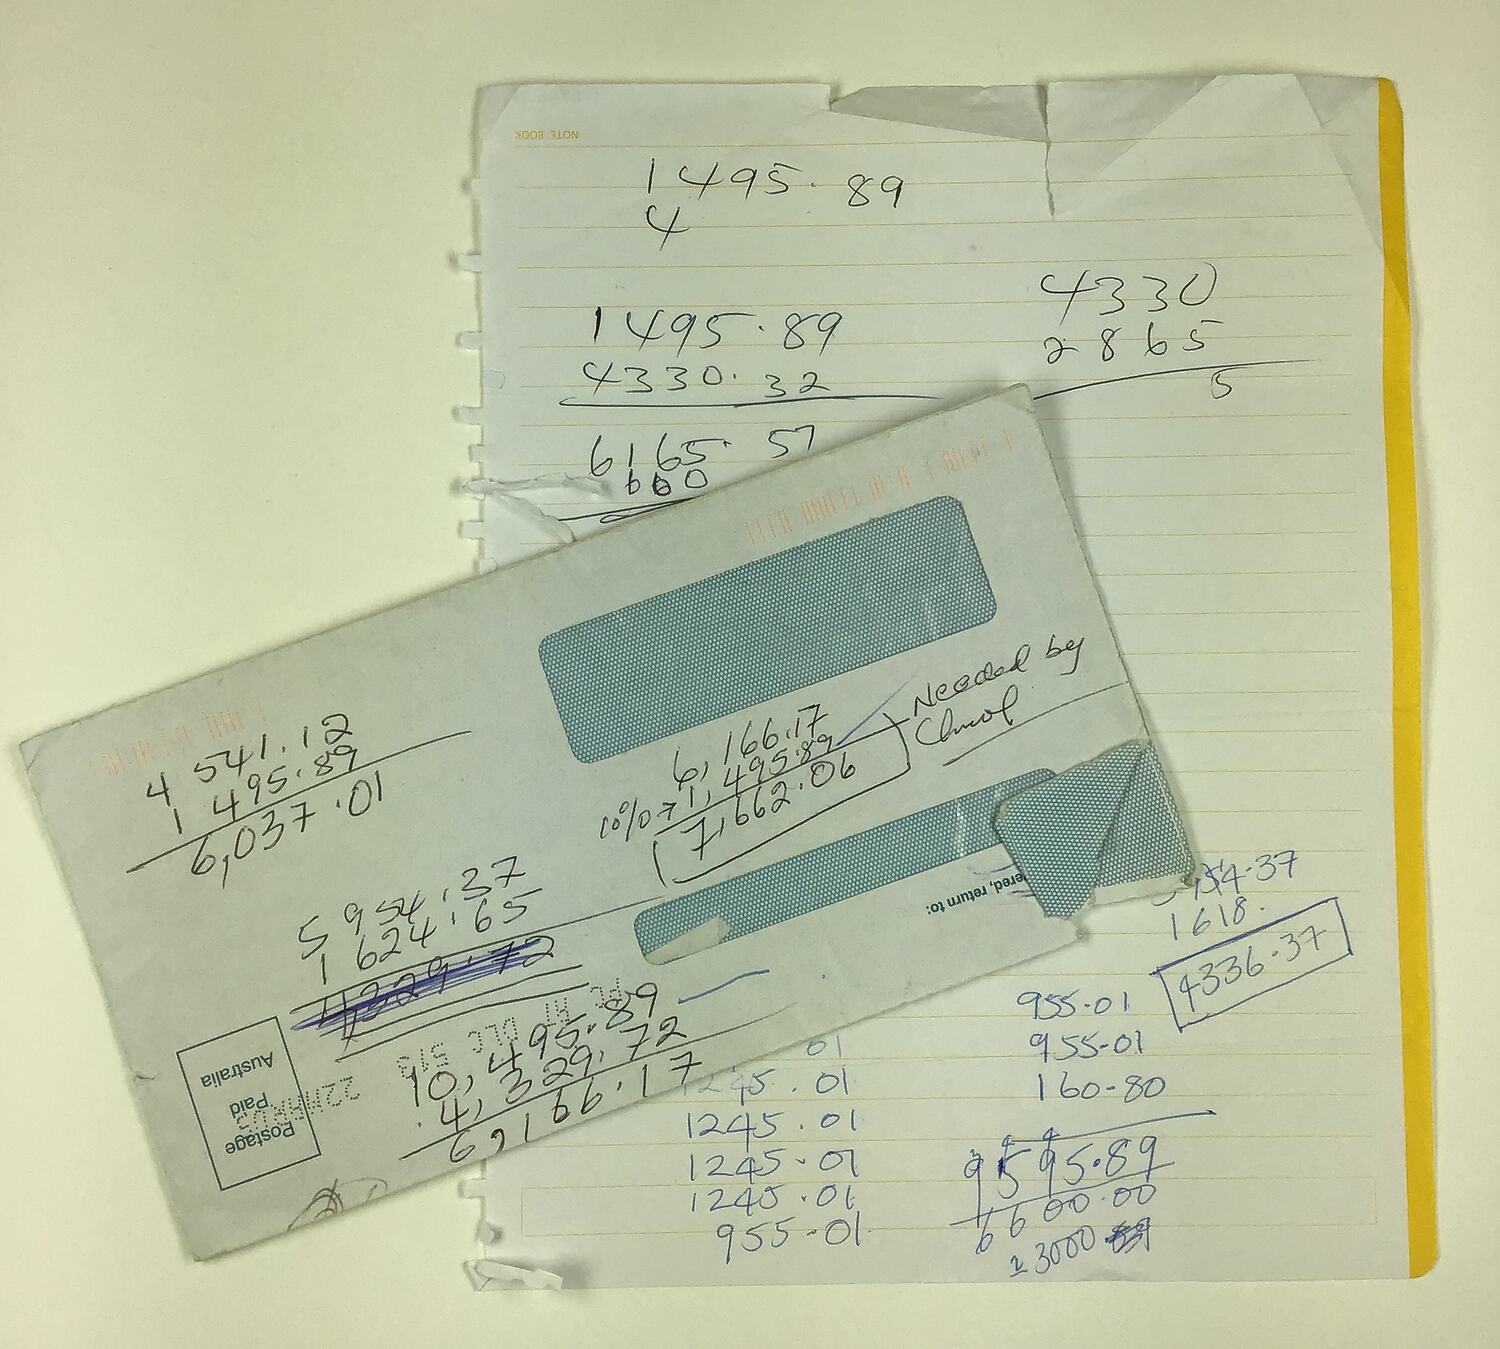 NOTE BOOK
1495.89
4
1495.89
4330.32
6165.57
660
4330
2865
5
4 541.12
1 495.89
6,037.01
6,166.17
10% → 1,495.89
7,662.06
Needed by
5 954.37
1 624.65
4329.72
10,495.89
4,329.72
6,166.17
ered, return to:
Postage
Paid
Australia
54.37
1618.
4336.37
955.01
955.01
160-80
9595.89
6600.00
3000
01
1245.01
1245.01
1245.01
1245.01
955-01